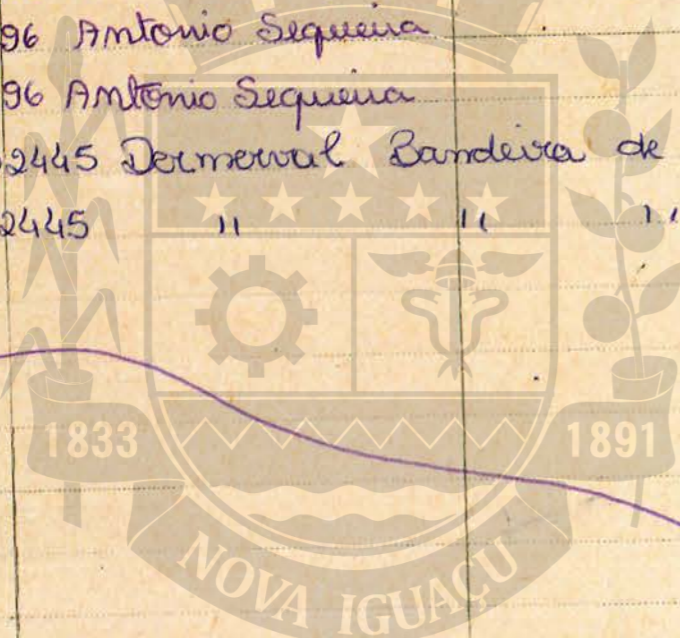 96 Antonio Sequeira
96 Antonio Sequeira
2445 Dermerval Bandeira de
2445 " " "
1833 1891
NOVA IGUAÇU